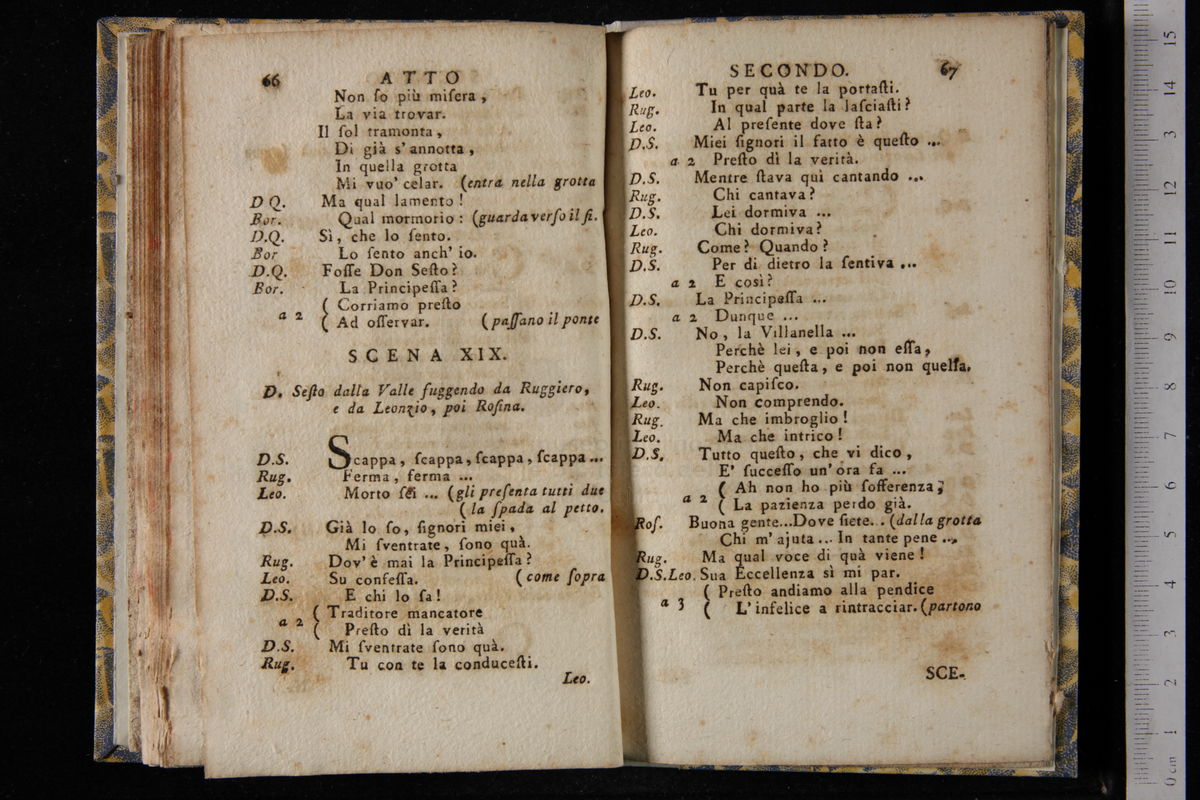 66 ATTO
Non ſo più miſera,
La via trovar.
Il ſol tramonta,
Di già s'annotta,
In quella grotta
Mi vuo' celar. (entra nella grotta
D Q. Ma qual lamento!
Bor. Qual mormorio: (guarda verſo il fi.
D.Q. Sì, che lo ſento.
Bor Lo ſento anch' io.
D.Q. Foſſe Don Seſto?
Bor. La Principeſſa?
a 2 ( Corriamo preſto
( Ad oſſervar. (paſſano il ponte
SCENA XIX.
D. Seſto dalla Valle fuggendo da Ruggiero,
e da Leonzio, poi Roſina.
D.S. Scappa, ſcappa, ſcappa, ſcappa...
Rug. Ferma, ferma ...
Leo. Morto ſei ... (gli preſenta tutti due
( la ſpada al petto.
D.S. Già lo ſo, ſignori miei,
Mi ſventrate, ſono quà.
Rug. Dov'è mai la Principeſſa?
Leo. Su confeſſa. (come ſopra
D.S. E chi lo ſa!
a 2 ( Traditore mancatore
( Preſto dì la verità
D.S. Mi ſventrate ſono quà.
Rug. Tu con te la conduceſti.
Leo.
SECONDO. 67
Leo. Tu per quà te la portaſti.
Rug. In qual parte la laſciaſti?
Leo. Al preſente dove ſta?
D.S. Miei ſignori il fatto è queſto ...
a 2 Preſto dì la verità.
D.S. Mentre ſtava qui cantando ...
Rug. Chi cantava?
D.S. Lei dormiva ...
Leo. Chi dormiva?
Rug. Come? Quando?
D.S. Per di dietro la ſentiva ...
a 2 E così?
D.S. La Principeſſa ...
a 2 Dunque ...
D.S. No, la Villanella ...
Perchè lei, e poi non eſſa,
Perchè queſta, e poi non quella,
Rug. Non capiſco.
Leo. Non comprendo.
Rug. Ma che imbroglio!
Leo. Ma che intrico!
D.S. Tutto queſto, che vi dico,
E' ſucceſſo un' ora fa ...
a 2 ( Ah non ho più ſofferenza;
( La pazienza perdo già.
Roſ. Buona gente...Dove ſiete... (dalla grotta
Chi m'ajuta... In tante pene ...
Rug. Ma qual voce di quà viene!
D.S.Leo. Sua Eccellenza sì mi par.
a 3 ( Preſto andiamo alla pendice
( L'infelice a rintracciar. (partono
SCE-
0 cm 1 2 3 4 5 6 7 8 9 10 11 12 13 14 15